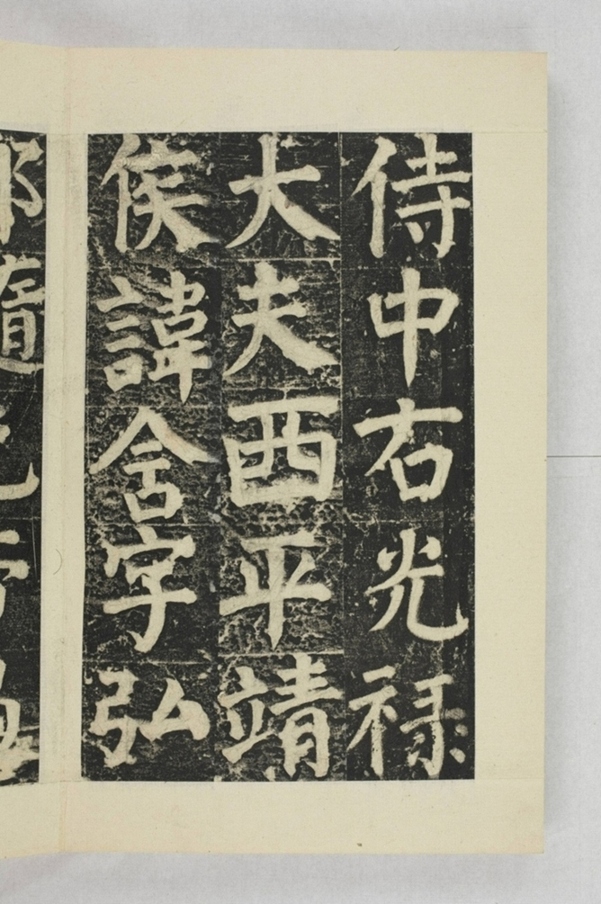 侍中右光禄
大夫西平靖
侯諱含字弘
隨